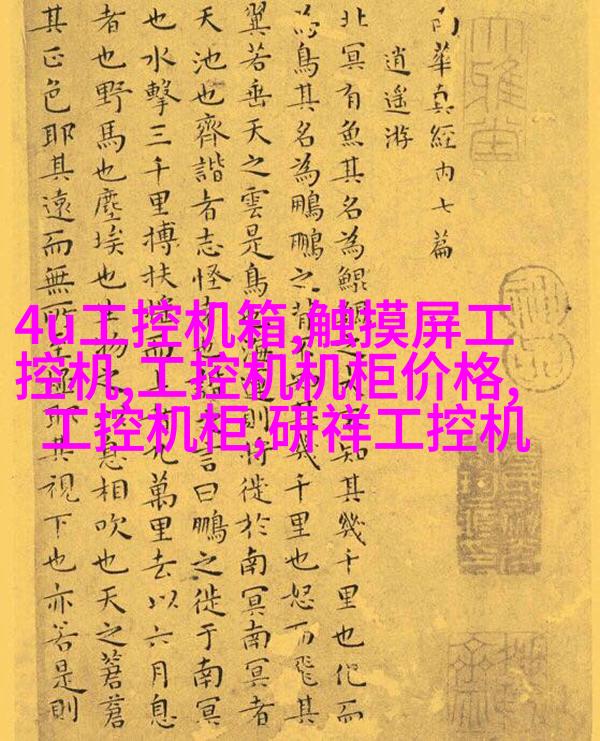 4u工控机箱,触摸屏工
控机,工控机机柜价格,
工控机柜,研祥工控机
南華真經內七篇
逍遥游
北冥有魚其名為鯤鯤之大不知其幾千里也化而
為鳥其名為鵬鵬之背不知其幾千里也怒而飛其
翼若垂天之雲是鳥也海運則將徙於南冥南冥者
天池也齊諧者志怪者也諧之言曰鵬之徙于南冥
也水擊三千里搏扶搖而上者九萬里去以六月息
者也野馬也塵埃也生物之以息相吹也天之蒼蒼
其正色耶其遠而無所至極耶其視下也亦若是則
大雅堂
神品